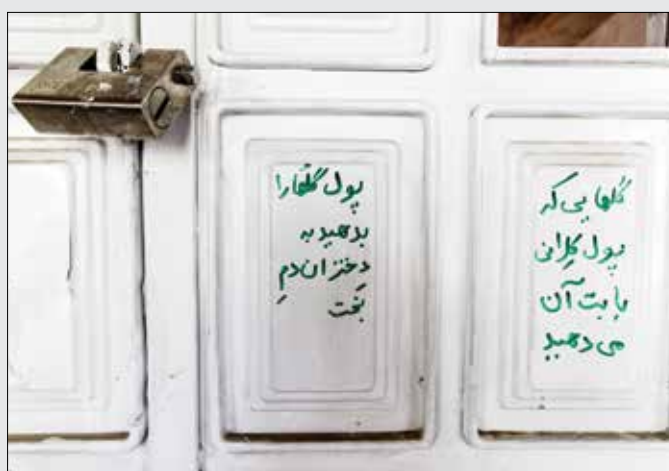 گلهایی که
پول گرانی
بابت آن
می دهید
پول گلها را
بدهید به
دختران دمِ
بخت